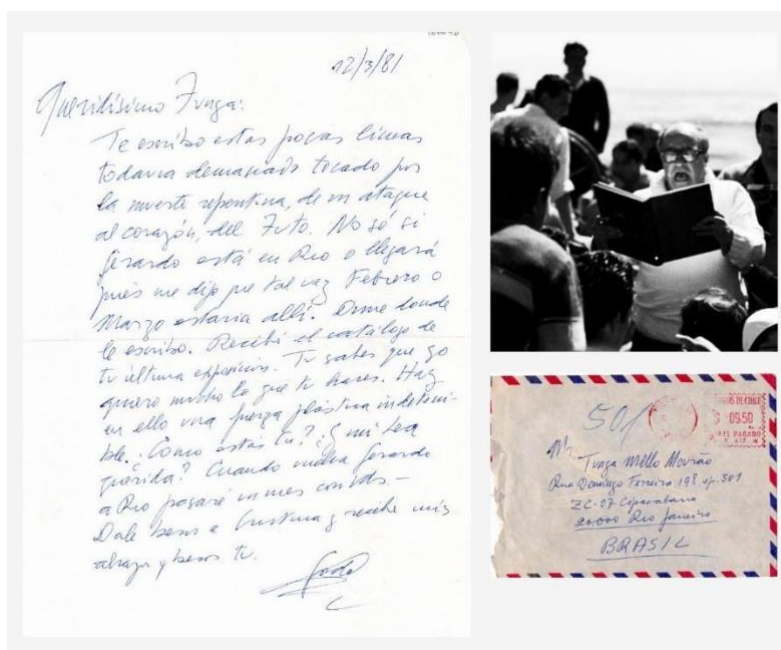 12/3/81
Queridísimo Tunga:
Te escribo estas pocas líneas
todavía demasiado tocado por
la muerte repentina, de un ataque
al corazón, del Tuto. No sé si
Gerardo está en Rio o llegará
pués me dijo que tal vez Febrero o
Marzo estaria alli. Dime donde
le escribo. Recibí el catálogo de
tu última exposición. Tu sabes que yo
quiero mucho lo que tu haces. Hay
en ello una fuerza plástica
ble. ¿Cómo estás tu? ¿Y mi Lea
querida? Cuando vuelva Gerardo
a Rio pasaré un mes con Uds.-
Dale besos a Cristina y recibe mis
abrazos y besos tu.
Godo
501
OS DE CHILE
09.50
Mr. Tunga Mello Mourão
Rua Domingo Ferreira 198 ap. 501
ZC-07 Copacabana
20000 Rio Janeiro
BRASIL